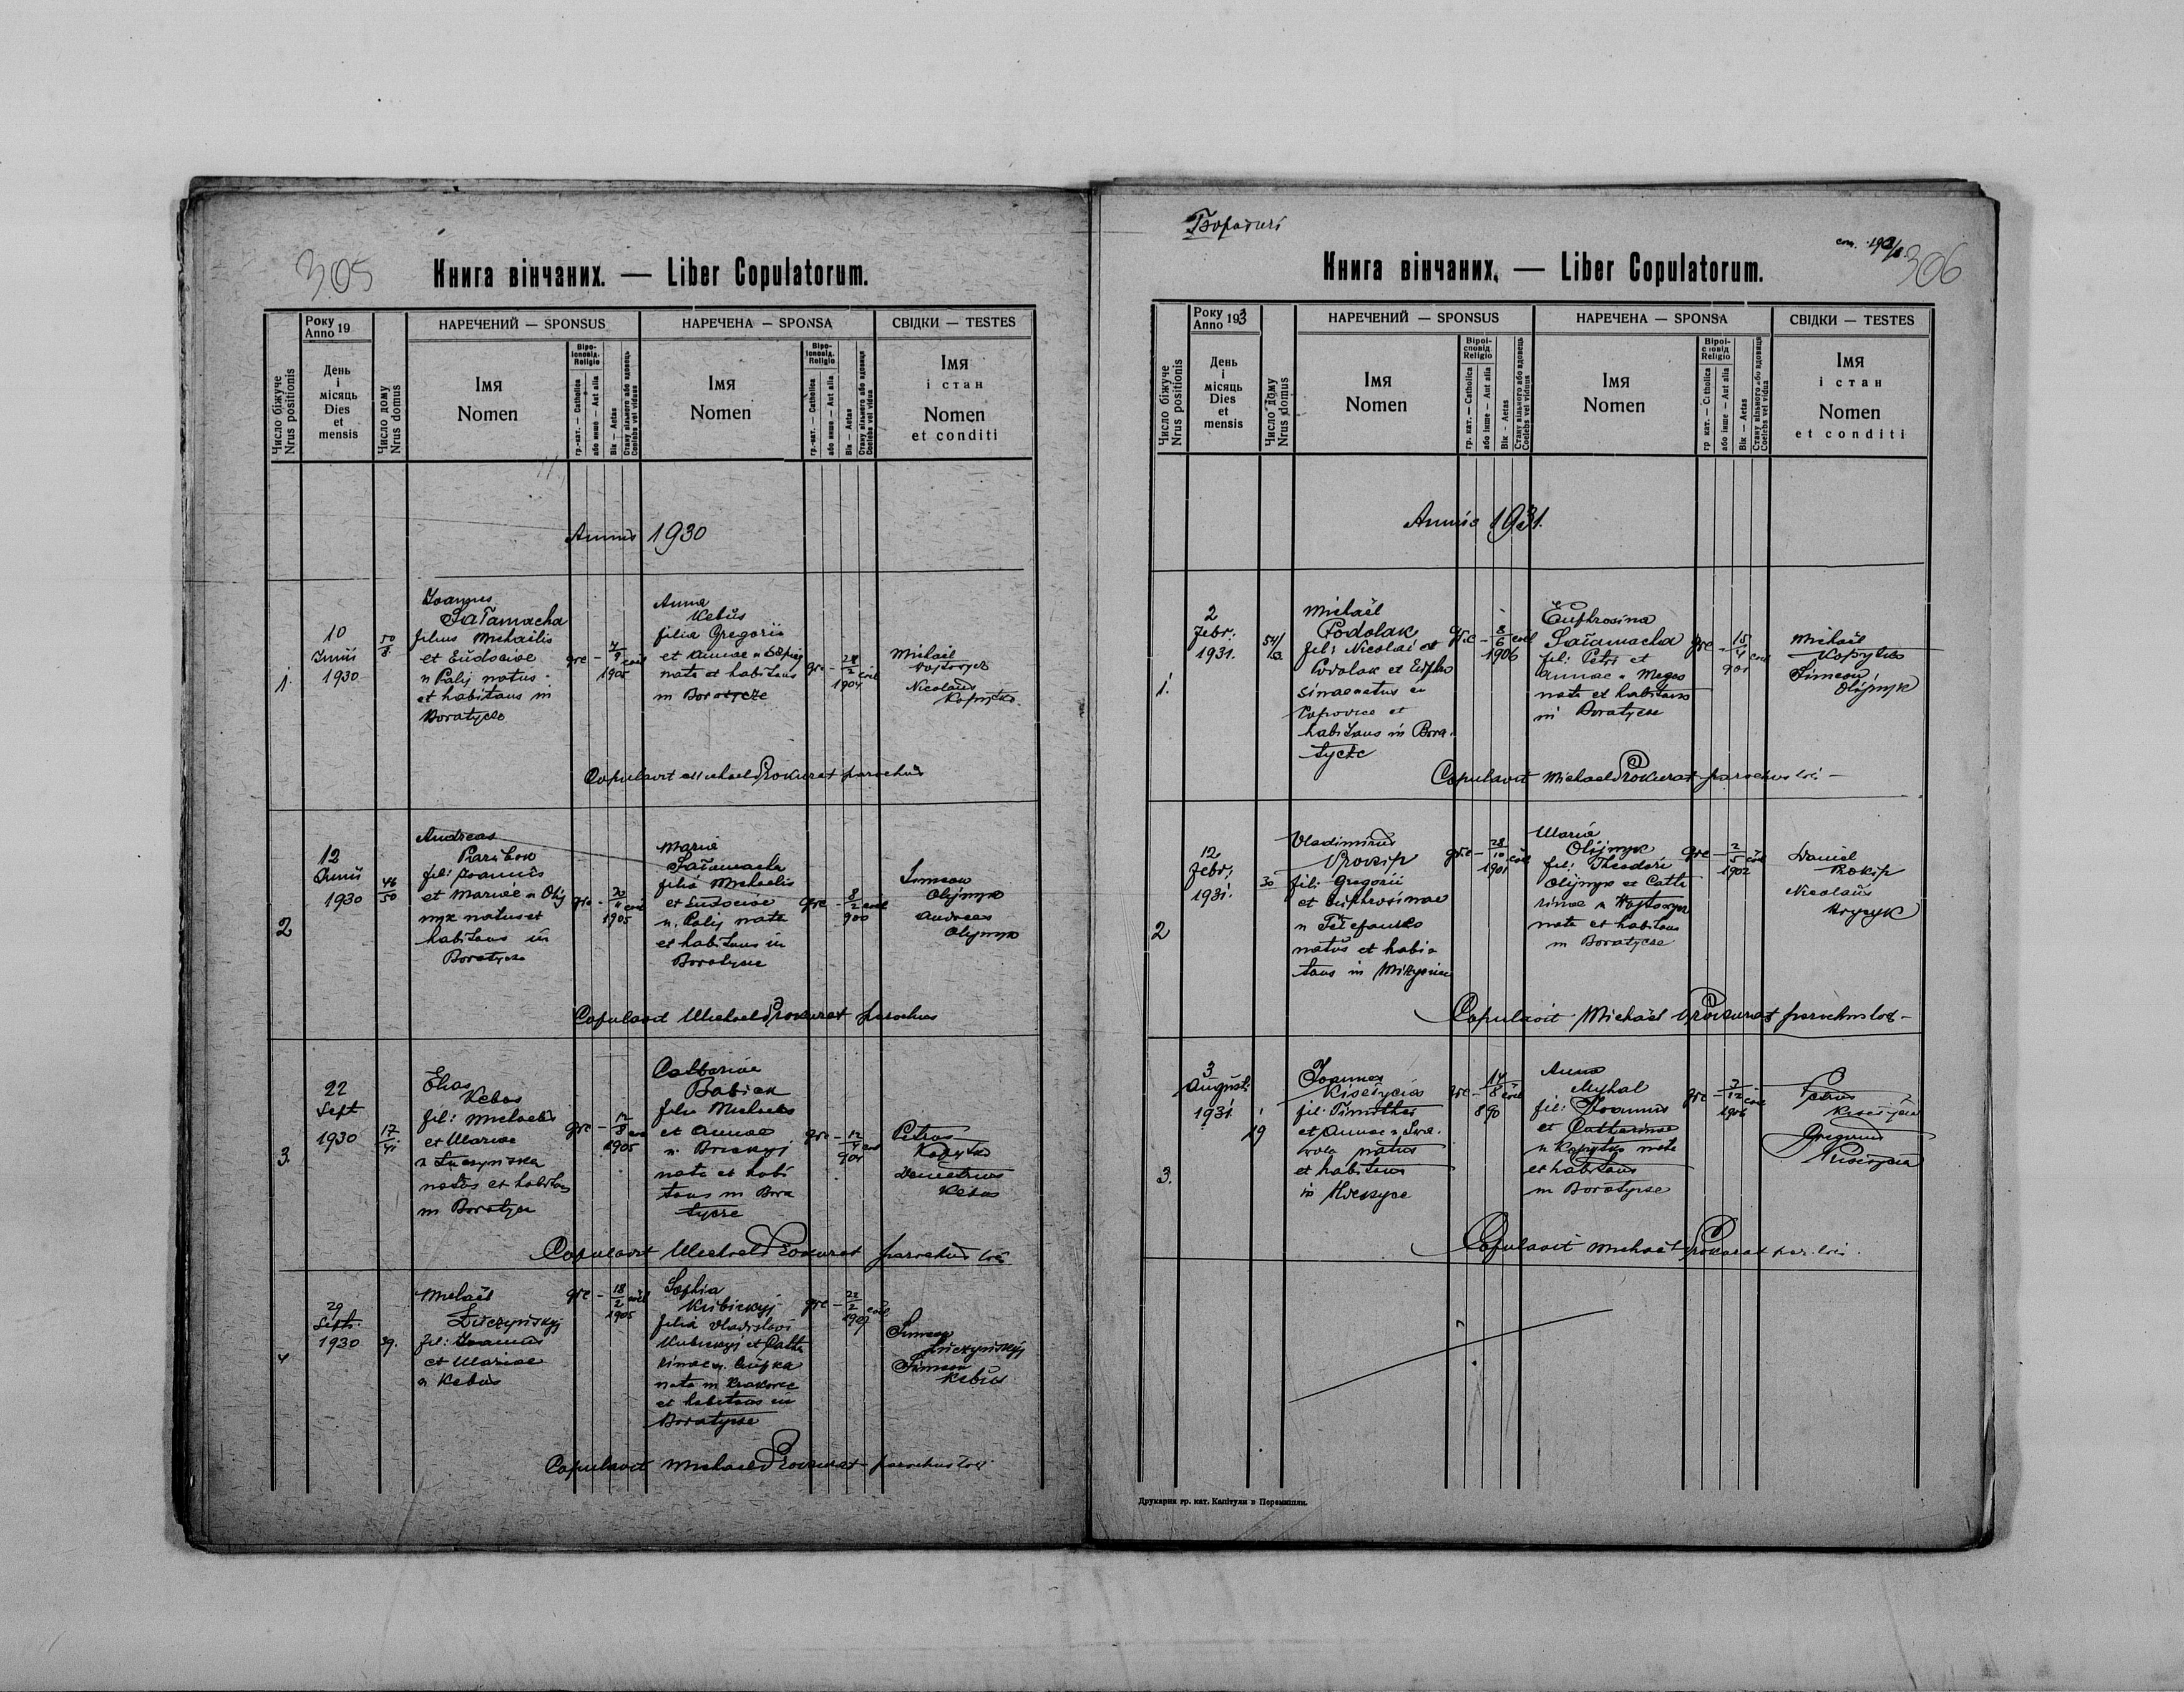 305
Книга вінчаних. — Liber Copulatorum.
Року
Anno 19
НАРЕЧЕНИЙ — SPONSUS
НАРЕЧЕНА — SPONSA
СВІДКИ — TESTES
Число біжуче
Nrus positionis
День
і
місяць
Dies
et
mensis
Число дому
Nrus domus
Імя
Nomen
Віро-
ісповід.
Religio
гр.-кат. — Catholica
або инше — Aut alia
Вік — Aetas
Стану вільного або вдовець
Coelebs vel viduus
Імя
Nomen
Віро-
ісповід.
Religio
гр.-кат. — Catholica
або инше — Aut alia
Вік — Aetas
Стану вільного або вдовиця
Coelebs vel vidua
Імя
і стан
Nomen
et conditi
Annus 1930
1.
10
Junii
1930
50
8
Joannes
Sałamacha
filius Michaelis
et Eudociae
n Palij natus
et habitans in
Boratycze
grc —
9
1905
coel
Anna
Kebus
filia Gregorii
et Annae n
nata et habitans
in Boratycze
grc —
28
2
1904
coel
Michael
Wojtowycz
Nicolaus
Kopytko.
Copulavit Michael Prokurat parochus
2
12
Junii
1930
46
50
Andreas
Paribok
fil: Joannis
et Mariae n Olij
nyk natus et
habitans in
Boratycze
grc —
1905
coel
Maria
Sałamacha
filia Michaelis
et Eudociae
n. Palij nata
et habitans in
Boratycze
grc —
8
2
900
coel
Simeon
Olijnyk
Andreas
Olijnyk
Copulavit Michael Prokurat parochus
3.
22
Sept
1930
17
41
Elias
Kebus
fil: Michaelis
et Mariae
n Łuczyńska
natus et habitans
in Boratycze
grc —
8
1905
coel
Catharina
Babiak
filia Michaelis
et Annae
n.
nata et habi
tans in Bora
tycze
grc —
12
4
904
coel
Petrus
Kopytko
Demetrius
Kebus
Copulavit Michael Prokurat parochus loci
4
29
Sept.
1930
39.
Michael
Łuczyńskyj
fil: Joannis
et Mariae
n Kebus
grc —
18
2
1905
coel
Sophia
Kubickyj
filia Vladislavi
Kubickyj et Catha
rinae n.
nata in Krakovec
et habitans in
Boratycze
grc —
22
2
1907
coel
Simeon
Łuczyńskyj
Simeon
Kebus
Copulavit Michael Prokurat parochus loci
Боратичі
306
Книга вінчаних. — Liber Copulatorum.
Року
Anno 193
НАРЕЧЕНИЙ — SPONSUS
НАРЕЧЕНА — SPONSA
СВІДКИ — TESTES
Число біжуче
Nrus positionis
День
і
місяць
Dies
et
mensis
Число дому
Nrus domus
Імя
Nomen
Віроі-
сповід.
Religio
гр. кат. — Catholica
або інше — Aut alia
Вік - Aetas
Стану вільного або вдовець
Coelebs vel viduus
Імя
Nomen
Віроі-
сповід.
Religio
гр кат. — Catholica
або інше — Aut alia
Вік — Aetas
Стану вільного або вдовиця
Coelebs vel vidua
Імя
і стан
Nomen
et conditi
Annus 1931.
1.
2
Febr.
1931.
Michaël
Podolak
fil: Nicolai et
Podolak et Euphro
sinae natus in
Popovice et
habitans in Bora
tycze
grc —
8
6
1906
coel
Euphrosina
Sałamacha
fil: Petri et
Annae n
nata et habitans
in Boratycze
grc —
15
4
901
coel
Michaël
Kopytko
Simeon
Olijnyk
Copulavit Michael Prokurat parochus loci —
2
12
Febr:
1931.
30
Vladimirus
Prokip
fil: Gregorii
et Euphrosinae
n
natus et habi
tans in
grc —
28
10
1901
coel
Maria
Olijnyk
fil: Theodori
Olijnyk et Catha
rinae n Wojtowycz
nata et habitans
in Boratycze
grc —
2
5
1902
coel
Daniel
Prokip
Nicolaus
Hrycyk
Copulavit Michaël Prokurat parochus loci —
3.
3
Augusti
1931
19
Joannes
Kisełycia
fil: Timothei
et Annae n
natus
et habitans
in
grc —
14
8
890
coel
Anna
Myhal
fil: Joannis
et Catharinae
n Kopytko nata
et habitans
in Boratycze
grc —
12
1906
coel
Petrus
Kisełycia
Gregorius
Kisełycia
Copulavit Michaël Prokurat par. loci.
Друкарня гр. кат. Капітули в Перемишли.